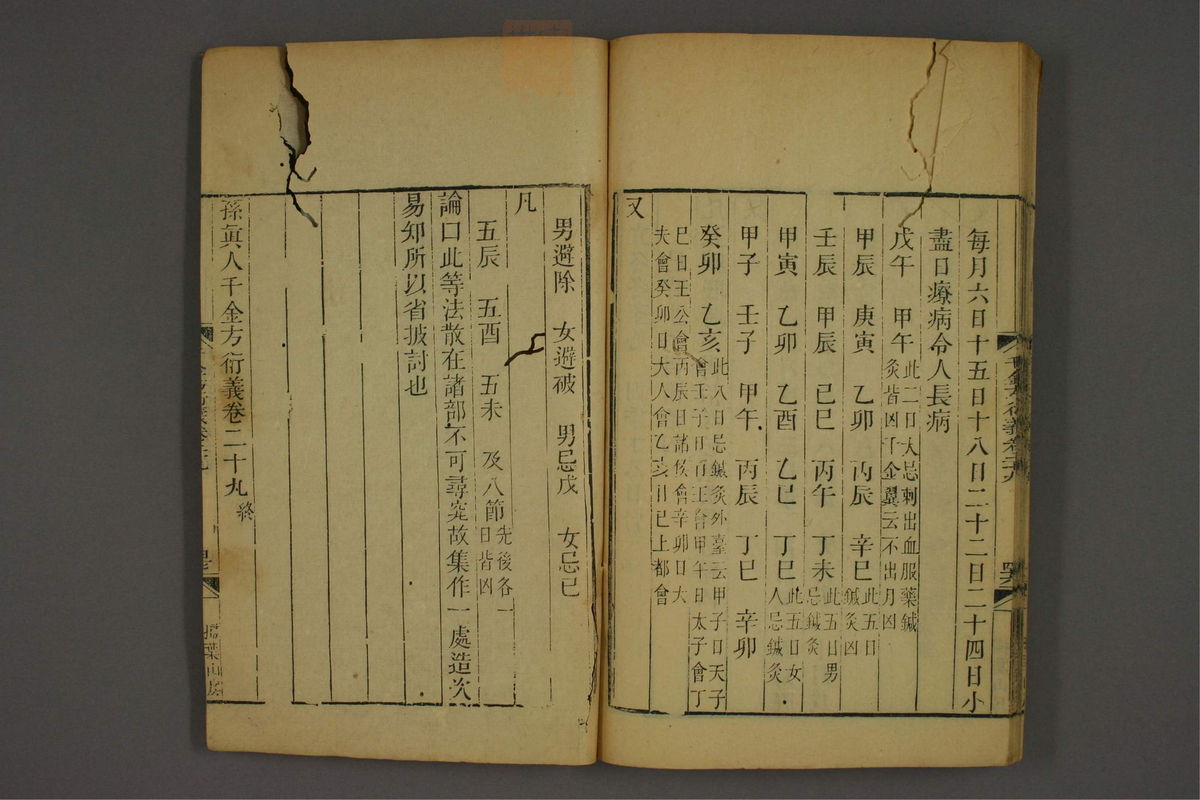 每月六日十五日十八日二十二日二十四日小
盡日療病令人長病
戊午　甲午　此二日大忌刺出血服藥鍼
灸皆凶千金翼云不出月凶
甲辰　庚寅　乙卯　丙辰　辛巳　此五日
鍼灸凶
壬辰　甲辰　己巳　丙午　丁未　此五日男
忌鍼灸
甲寅　乙卯　乙酉　乙巳　丁巳　此五日女
人忌鍼灸
甲子　壬子　甲午　丙辰　丁巳　辛卯
癸卯　乙亥　此八日忌鍼灸外臺云甲子日天子
會壬子日百王會甲午日太子會丁
巳日王公會丙辰日諸侯會辛卯日大
夫會癸卯日大人會乙亥日已上都會
又
男避除　女避破　男忌戊　女忌己
凡
五辰　五酉　五未　及八節　先後各一
日皆凶
論曰此等法散在諸部不可尋究故集作一處造次
易知所以省披討也
孫眞人千金方衍義卷二十九　終
千金方衍義卷二十九
掃葉山房